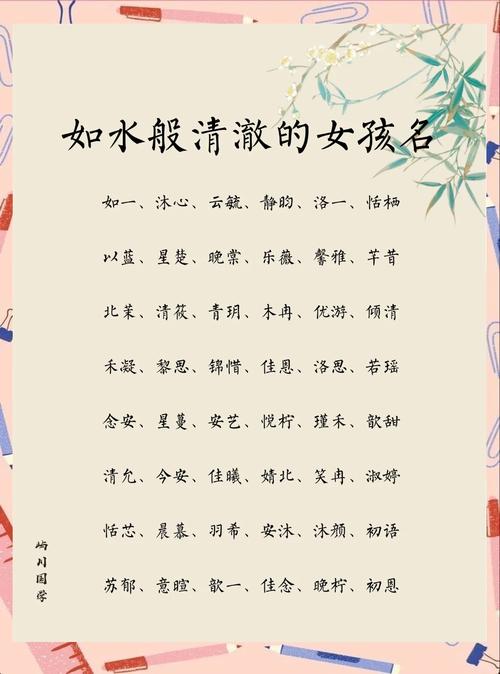 如水般清澈的女孩名
如一、沐心、云毓、静昀、洛一、恬栖
以蓝、星楚、晚棠、乐薇、馨雅、芊昔
北茉、清筱、青玥、木冉、优游、倾清
禾凝、黎思、锦惜、佳恩、洛思、若瑶
念安、星蔓、安艺、悦柠、瑾禾、歆甜
清允、今安、佳曦、婧北、笑冉、淑婷
恬芯、晨慕、羽希、安沐、沐颜、初语
苏郁、意暄、歆一、佳念、晚柠、初恩
屿川国学